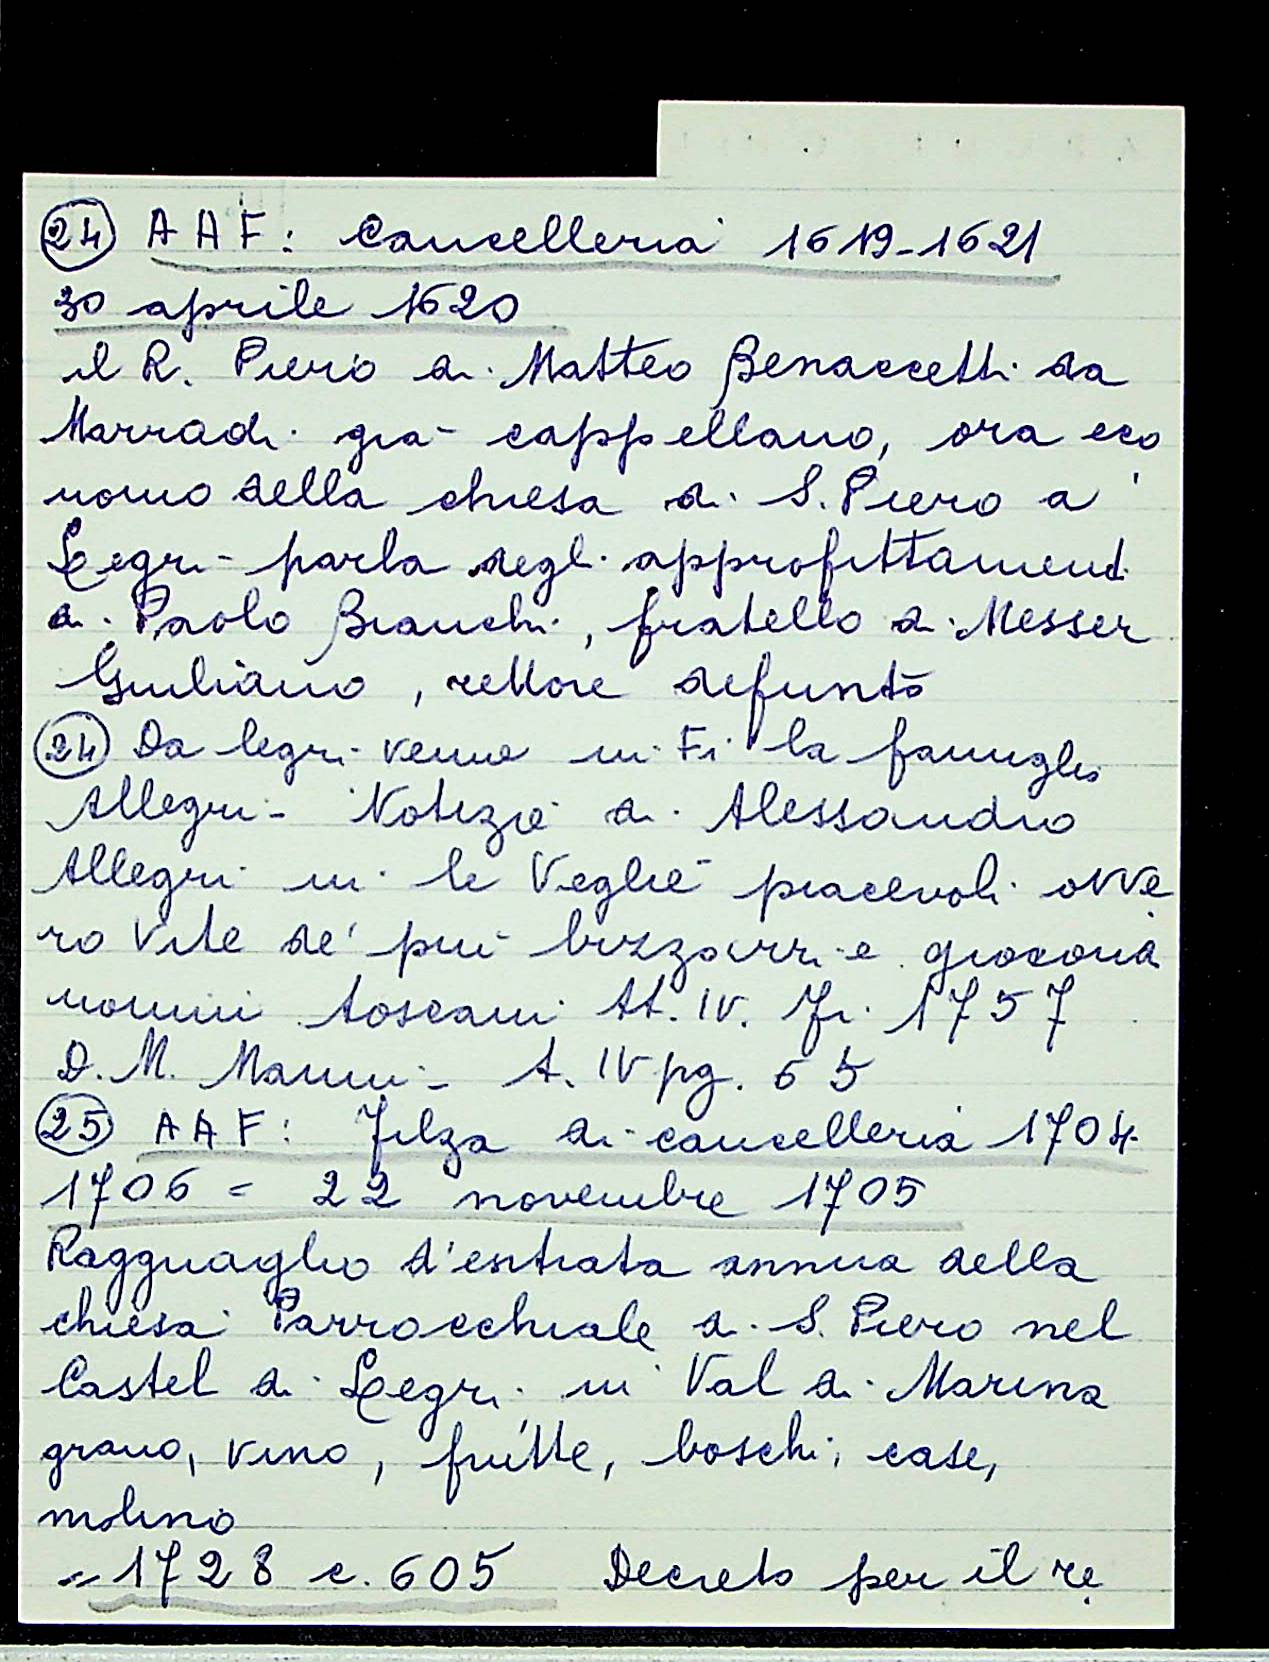 24 AAF: Cancelleria 1619-1621
30 aprile 1620
il R. Piero di Matteo Benaccetti da
Marradi già cappellano, ora eco
nomo della chiesa di S. Piero a
Legri - parla degli approfittamenti
di Paolo Bianchi, fratello di Messer
Giuliano, rettore defunto
24 Da legri venne in Fi la famiglia
Allegri - Notizie di Alessandro
Allegri in le Veglie piacevoli ovve
ro Vite de' più bizzarri e giocondi
uomini toscani tt. IV. Fi. 1757
D. M. Manni - t. IV pg. 65
25 AAF: Filza di cancelleria 1704-
1706 = 22 novembre 1705
Ragguaglio d'entrata annua della
chiesa Parrocchiale di S. Piero nel
Castel di Legri in Val di Marina
grano, vino, frutte, boschi, case,
molino
= 1728 c. 605 Decreto per il re